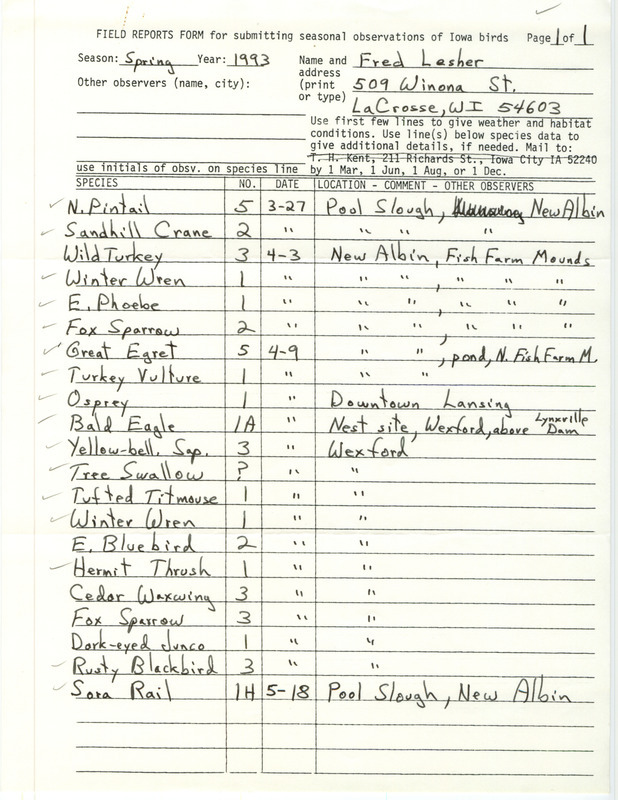 FIELD REPORTS FORM for submitting seasonal observations of Iowa birds Page 1 of 1
Season: Spring Year: 1993 Name and Fred Lesher
address
Other observers (name, city): (print 509 Winona St.
or type) LaCrosse, WI 54603
Use first few lines to give weather and habitat
conditions. Use line(s) below species data to
give additional details, if needed. Mail to:
T. H. Kent, 211 Richards St., Iowa City IA 52240
use initials of obsv. on species line by 1 Mar, 1 Jun, 1 Aug, or 1 Dec.
SPECIES NO. DATE LOCATION - COMMENT - OTHER OBSERVERS
N. Pintail 5 3-27 Pool Slough, New Albin
Sandhill Crane 2 " " " "
Wild Turkey 3 4-3 New Albin, Fish Farm Mounds
Winter Wren 1 " " " , " " "
E. Phoebe 1 " " " , " " "
Fox Sparrow 2 " " " , " " "
Great Egret 5 4-9 " " , pond, N. Fish Farm M.
Turkey Vulture 1 " " "
Osprey 1 " Downtown Lansing
Bald Eagle 1A " Nest site, Wexford, above Lynxville Dam
Yellow-bell. Sap. 3 " Wexford
Tree Swallow ? " "
Tufted Titmouse 1 " "
Winter Wren 1 " "
E. Bluebird 2 " "
Hermit Thrush 1 " "
Cedar Waxwing 3 " "
Fox Sparrow 3 " "
Dark-eyed Junco 1 " "
Rusty Blackbird 3 " "
Sora Rail 1H 5-18 Pool Slough, New Albin